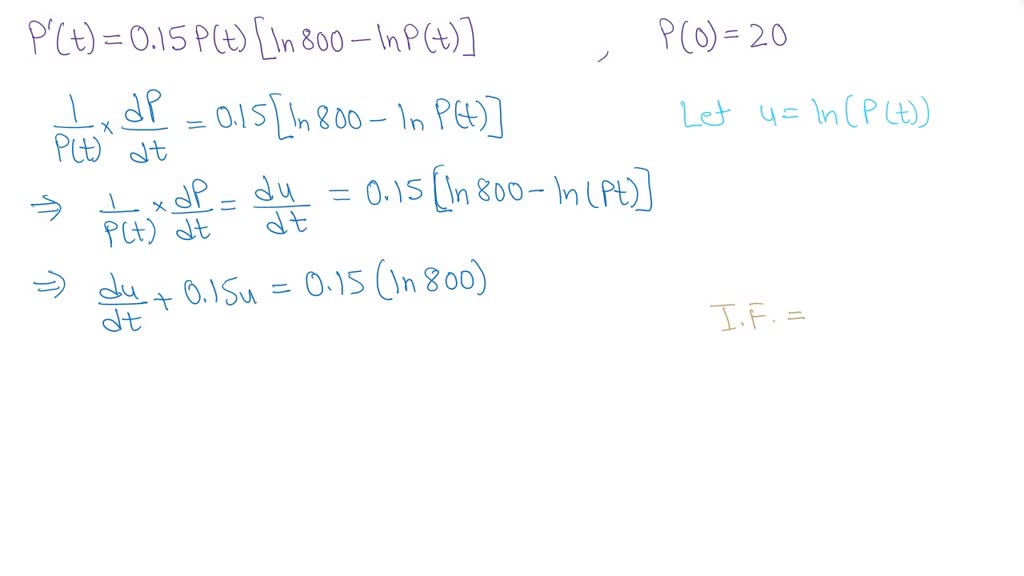 P'(t) = 0.15 P(t) [ln 800 – ln P(t)] , P(0) = 20
1/P(t) × dP/dt = 0.15 [ln 800 – ln P(t)] Let u = ln(P(t))
⇒ 1/P(t) × dP/dt = du/dt = 0.15 [ln 800 – ln(Pt)]
⇒ du/dt + 0.15u = 0.15 (ln 800)
I.F. =